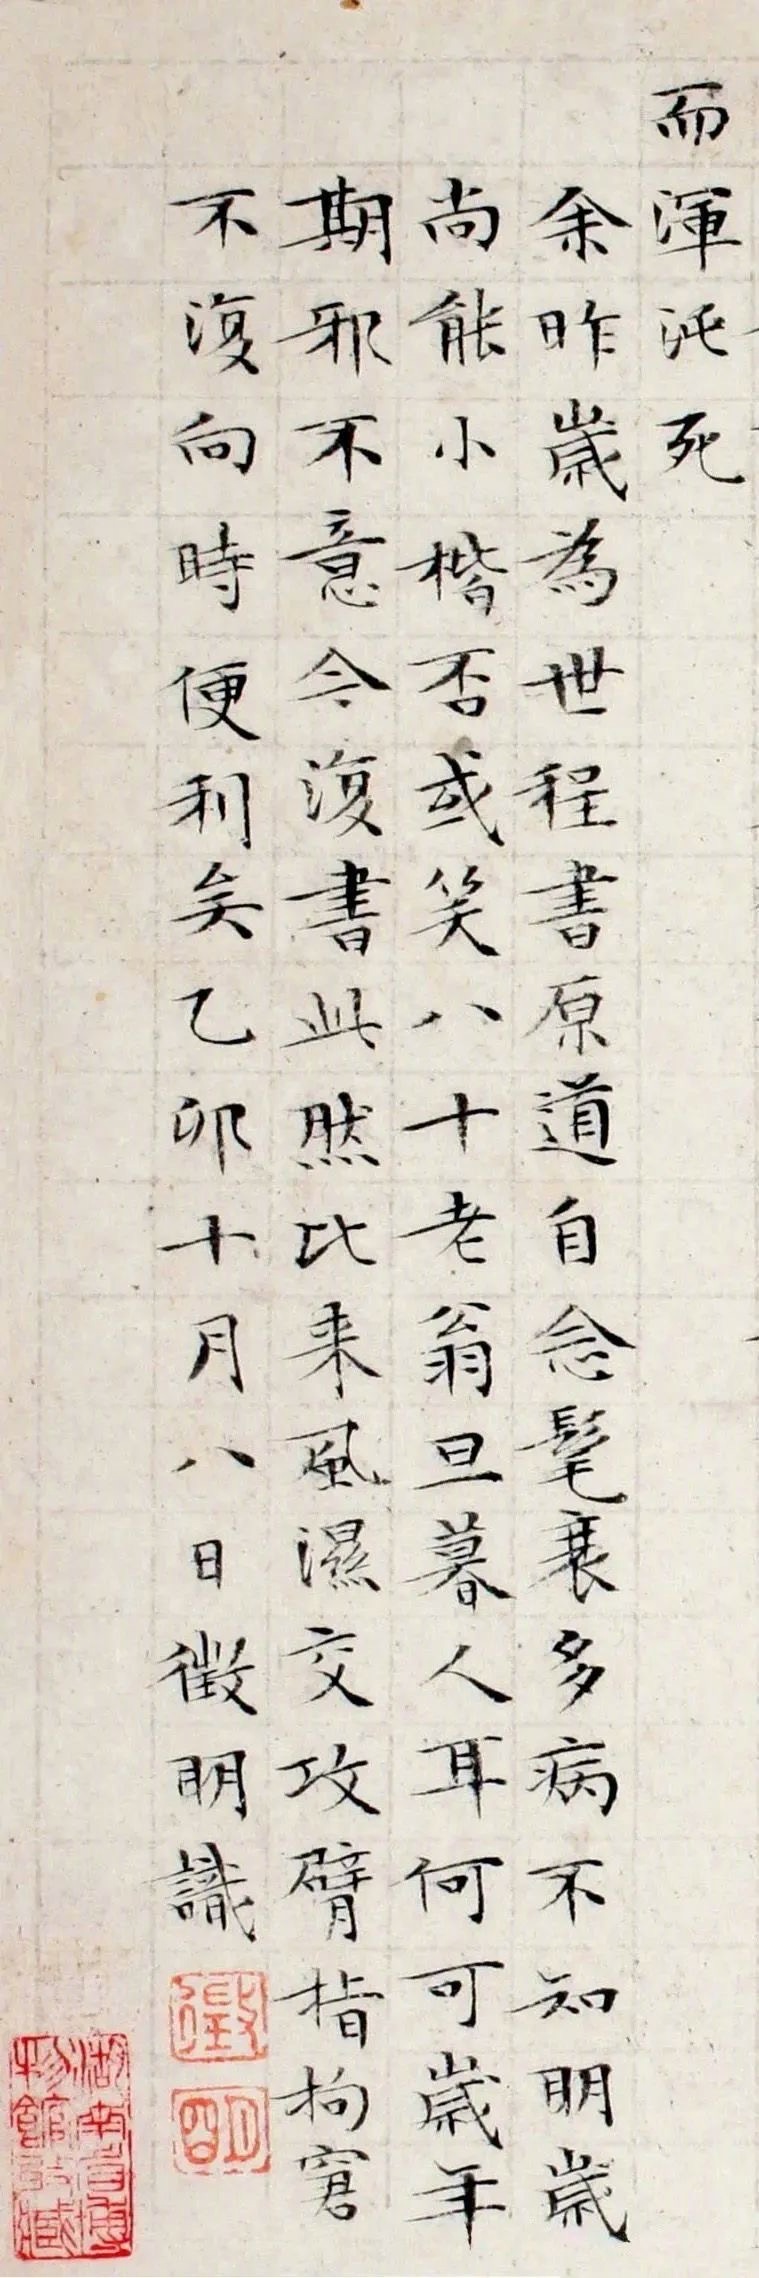 而渾沌死
余昨歲為世程書原道自念髦衰多病不知明歲
尚能小楷否或笑八十老翁旦暮人耳何可歲年
期邪不意今復書此然比来風濕交攻臂指拘窘
不復向時便利矣乙卯十月八日徵明識
徵
明
湖南省博
物館收藏